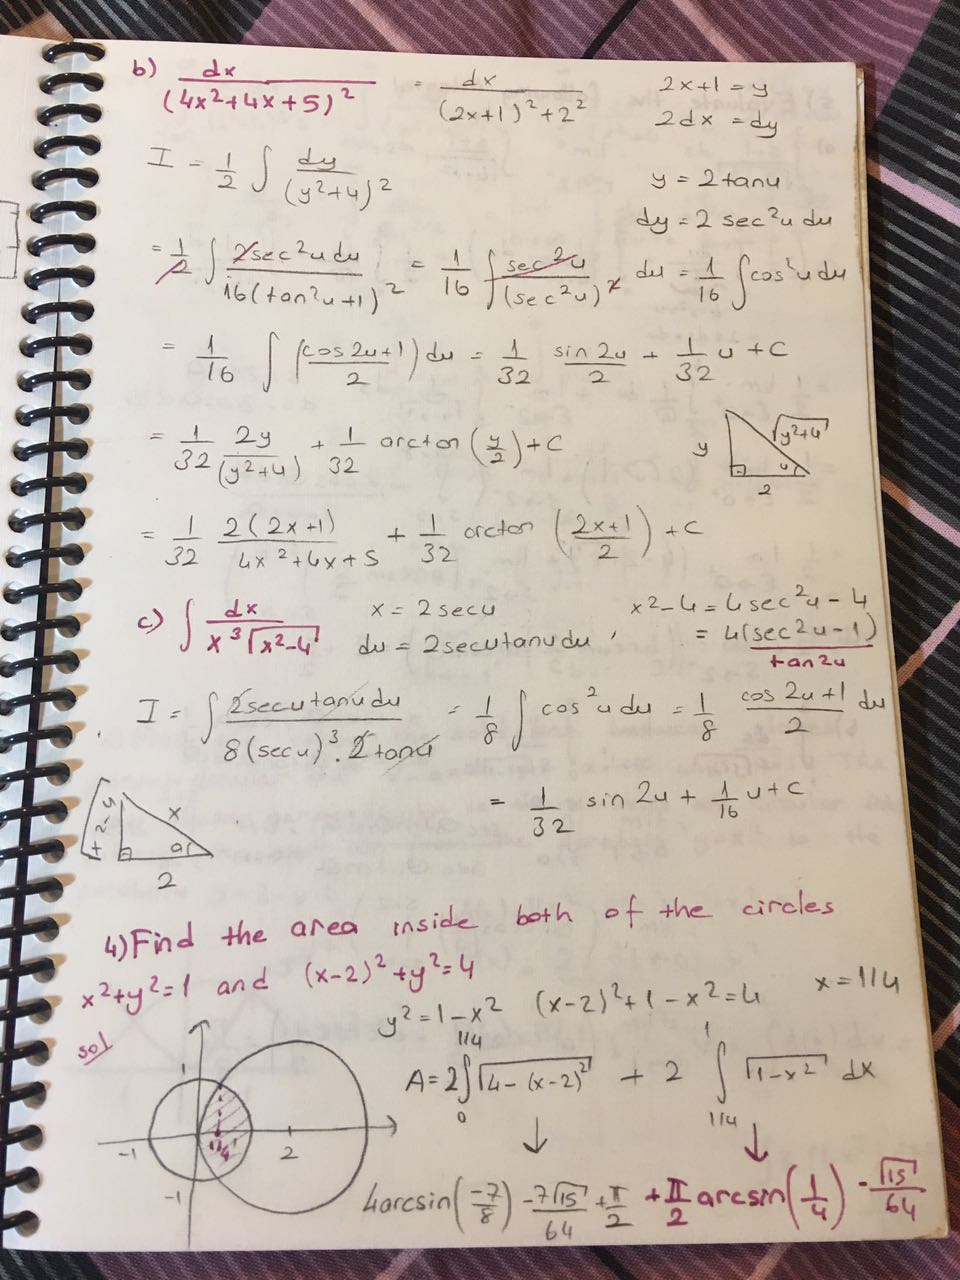 b) dx/(4x²+4x+5)² = dx/((2x+1)²+2²) 2x+1 = y
2dx = dy
I = 1/2 ∫ dy/(y²+4)² y = 2tanu
dy = 2 sec²u du
= 1/2 ∫ 2sec²u du/16(tan²u+1)² = 1/16 ∫ sec²u/(sec²u)² du = 1/16 ∫ cos²u du
= 1/16 ∫ (cos2u+1)/2 du = 1/32 sin2u/2 + 1/32 u + C
= 1/32 2y/(y²+4) + 1/32 arctan (y/2) + C y √y²+4 u 2
= 1/32 2(2x+1)/4x²+4x+5 + 1/32 arctan (2x+1/2) + C
c) ∫ dx/x³√x²-4 x = 2secu x²-4 = 4sec²u - 4
du = 2secutanu du = 4(sec²u-1)
tan2u
I = ∫ 2secutanu du/8(secu)³.2tanu = 1/8 ∫ cos²u du = 1/8 cos2u+1/2 du
= 1/32 sin2u + 1/16 u + C
x 2
4) Find the area inside both of the circles
x²+y²=1 and (x-2)²+y²=4
y²=1-x² (x-2)²+1-x²=4 x=1/4
sol
A = 2 ∫₀^1/4 √4-(x-2)² + 2 ∫_1/4^1 √1-x² dx
1 -1 1/4 1 2 -1
4arcsin(-7/8) - 7√15/64 + π/2 + π/2 arcsin(1/4) - √15/64